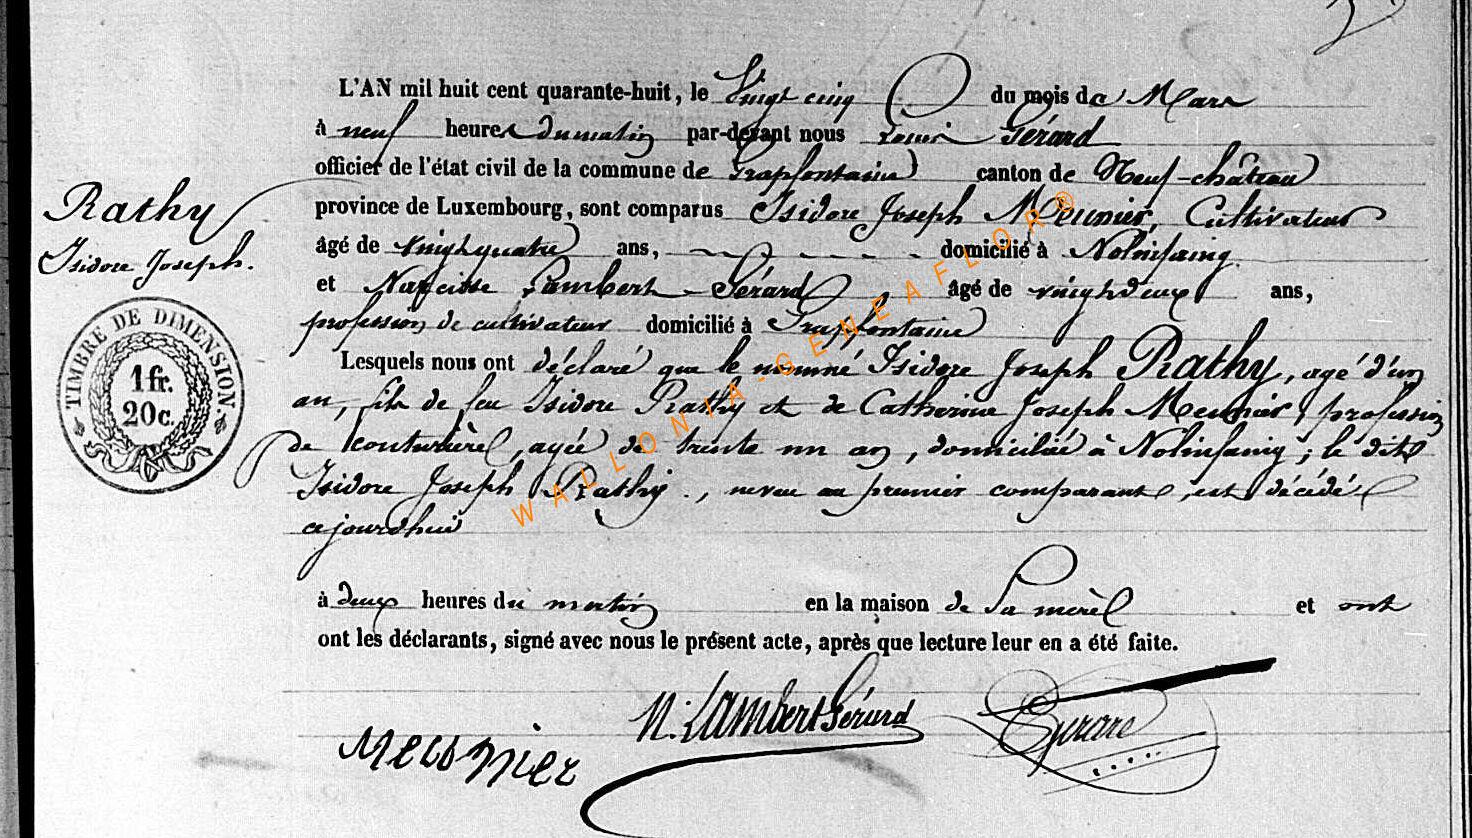 L'AN mil huit cent quarante-huit, le vingt cinq du mois de Mars
à neuf heures du matin par-devant nous Louis Gérard
officier de l'état civil de la commune de Grapfontaine canton de Neuf-château
province de Luxembourg, sont comparus Isidore Joseph Meunier, Cultivateur
âgé de vingt quatre ans, domicilié à Nolinfaing
et Narcisse Lambert-Gérard âgé de vingt deux ans,
profession de cultivateur domicilié à Grapfontaine
Lesquels nous ont déclaré que le nommé Isidore Joseph Rathy, agé d'un
an, fils de feu Isidore Rathy et de Catherine Joseph Meunier, profession
de couturière, agée de trente un an, domiciliée à Nolinfaing; le dit
Isidore Joseph Rathy, neveu au premier comparant, est décédé
cejourdhui
à deux heures du matin en la maison de Sa mère et ont
ont les déclarants, signé avec nous le présent acte, après que lecture leur en a été faite.
Rathy
Isidore Joseph.
TIMBRE DE DIMENSION.
1 fr.
20 c.
WALLONIA-GENEAFLOR®
N. Lambert Gérard
Gérard
Meunier